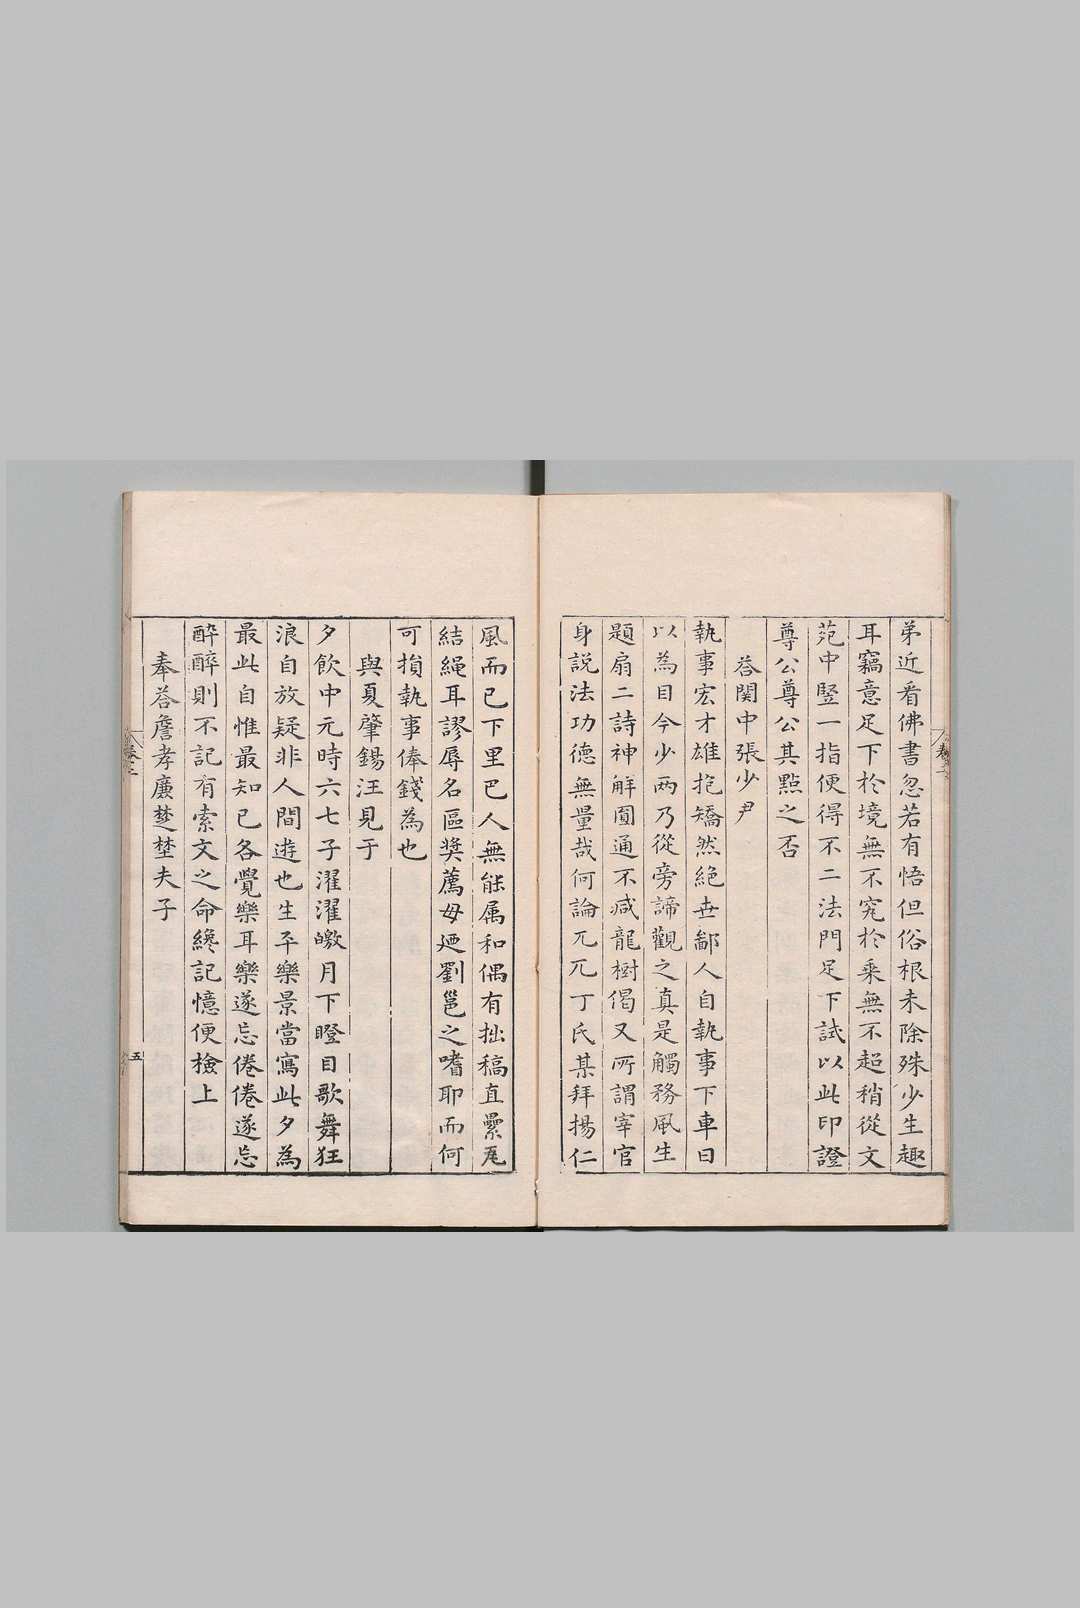 弟近看佛書忽若有悟但俗根未除殊少生趣
耳竊意足下於境無不究於乘無不超稍從文
苑中竪一指便得不二法門足下試以此印證
尊公尊公其點之否
荅関中張少尹
執事宏才雄抱矯然絕世鄙人自執事下車日
以為目今少兩乃從旁諦觀之真是觸務風生
題扇二詩神解圓通不减龍樹偈又所謂宰官
身説法功德無量哉何論兀兀丁氏某拜揚仁
風而已下里巴人無能属和偶有拙稿直纍瓦
結繩耳謬辱名區奖薦毋迺劉邕之嗜耶而何
可損執事俸錢為也
與夏肇錫汪見于
夕飲中元時六七子濯濯皦月下瞪目歌舞狂
浪自放疑非人間遊也生平樂景當寫此夕為
最此自惟最知已各覺樂耳樂遂忘倦倦遂忘
酔酔則不記有索文之命纔記憶便檢上
奉荅詹孝廉楚埜夫子
五